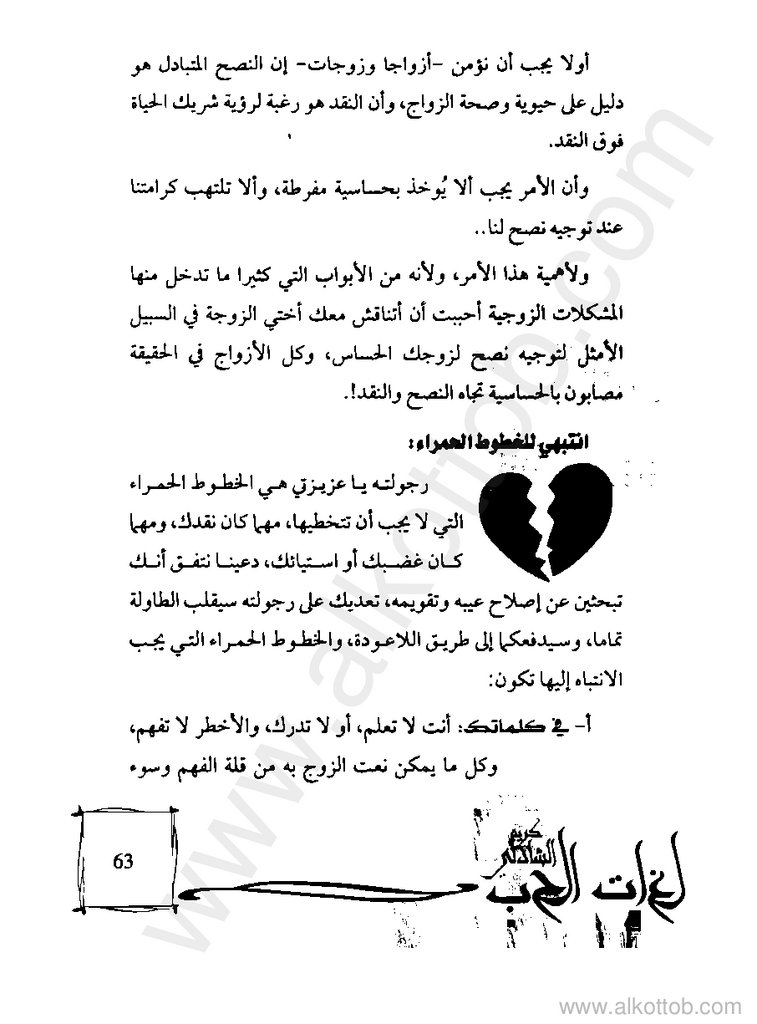 أولا يجب أن نؤمن –أزواجا وزوجات– إن النصح المتبادل هو
دليل على حيوية وصحة الزواج، وأن النقد هو رغبة لرؤية شريك الحياة
فوق النقد.
وأن الأمر يجب ألا يُوخذ بحساسية مفرطة، وألا تلتهب كرامتنا
عند توجيه نصح لنا..
ولأهمية هذا الأمر، ولأنه من الأبواب التي كثيرا ما تدخل منها
المشكلات الزوجية أحببت أن أتناقش معك أختي الزوجة في السبيل
الأمثل لتوجيه نصح لزوجك الحساس، وكل الأزواج في الحقيقة
مصابون بالحساسية تجاه النصح والنقد!.
انتبهي للخطوط الحمراء:
رجولته يا عزيزتي هي الخطوط الحمراء
التي لا يجب أن تتخطيها، مهما كان نقدك، ومهما
كان غضبك أو استيائك، دعينا نتفق أنك
تبحثين عن إصلاح عيبه وتقويمه، تعديك على رجولته سيقلب الطاولة
تماما، وسيدفعكما إلى طريق اللاعودة، والخطوط الحمراء التي يجب
الانتباه إليها تكون:
أ- في كلماتك: أنت لا تعلم، أو لا تدرك، والأخطر لا تفهم،
وكل ما يمكن نعت الزوج به من قلة الفهم وسوء
كريم
الشاذلي
لغات الحب
63
www.alkottob.com
www.alkottob.com